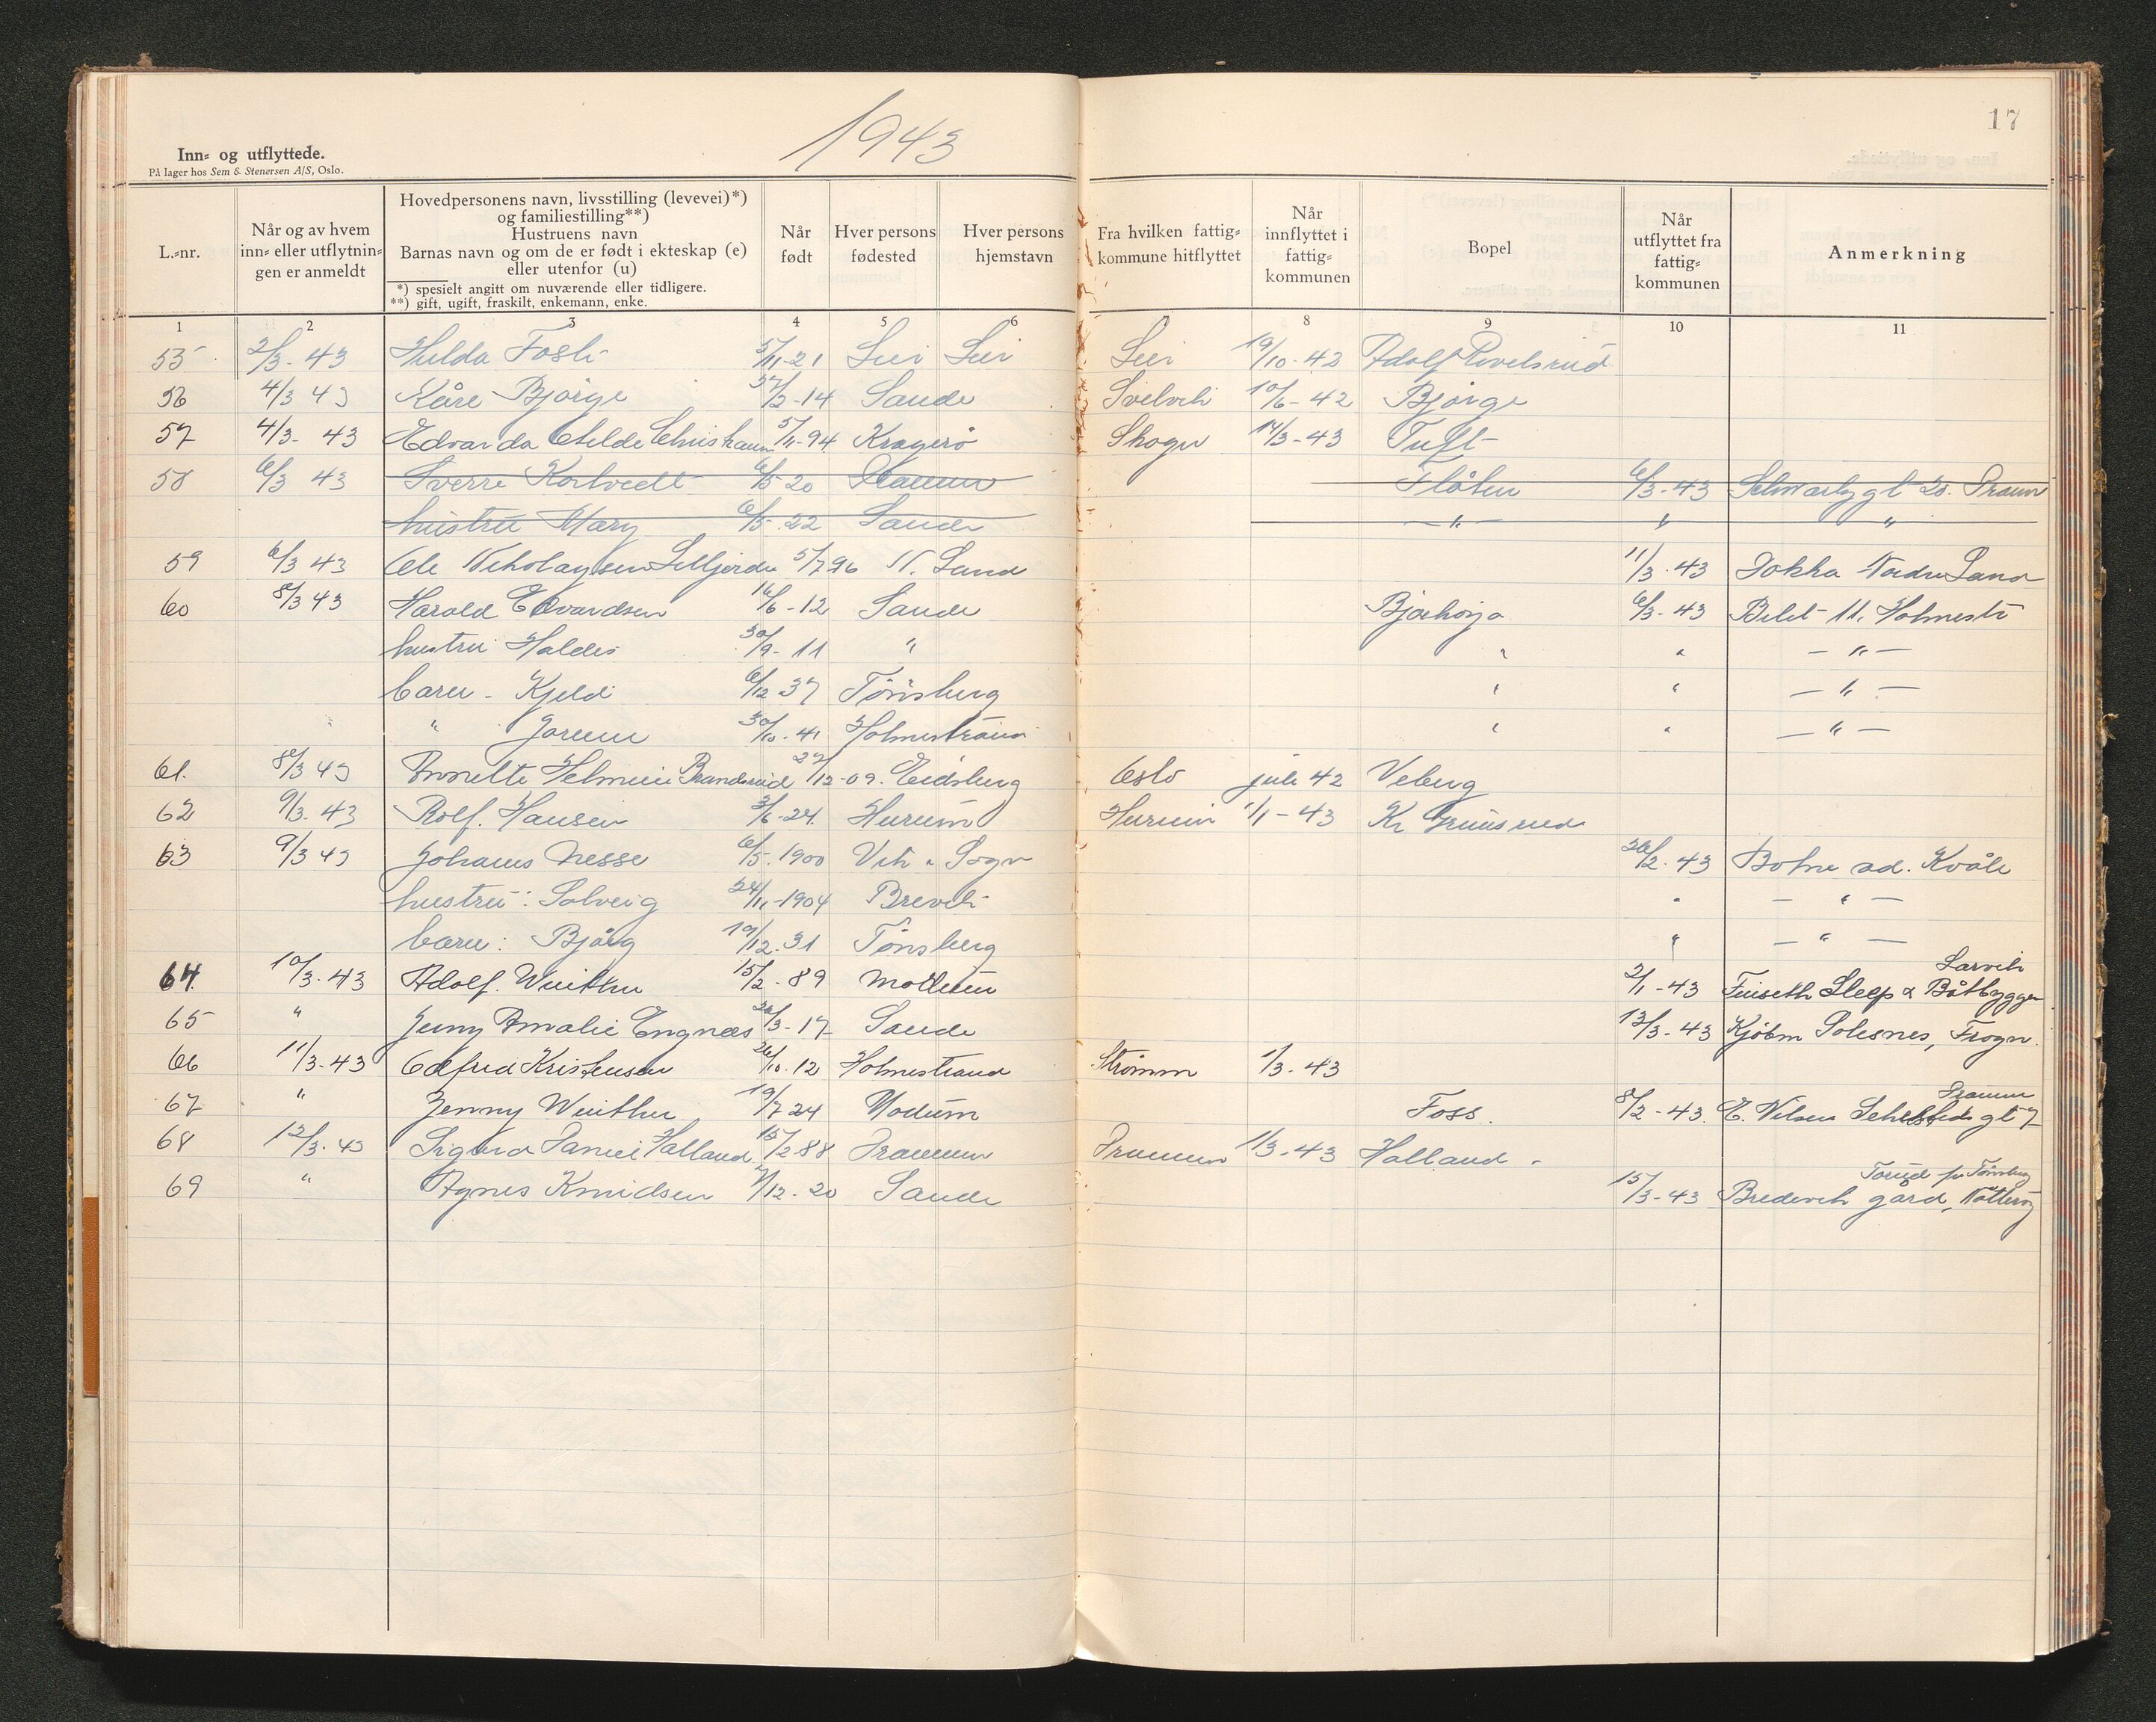 1943
17
Inn- og utflyttede.
På lager hos Sem & Stenersen A/S, Oslo.
L.-nr.
Når og av hvem inn- eller utflytnin- gen er anmeldt
Hovedpersonens navn, livsstilling (levevei)*) og familiestilling**)
Hustruens navn
Barnas navn og om de er født i ekteskap (e) eller utenfor (u)
*) spesielt angitt om nuværende eller tidligere.
**) gift, ugift, fraskilt, enkemann, enke.
Når født
Hver persons fødested
Hver persons hjemstavn
Fra hvilken fattig- kommune hitflyttet
Når innflyttet i fattig- kommunen
Bopel
Når utflyttet fra fattig- kommunen
Anmerkning
1 2 3 4 5 6 8 9 10 11
55 2/3-43 Hulda Fosli 5/11-21 Lier Lier Lier 19/10-42 Adolf
56 4/3 43 Kåre Bjørge /2-14 Sande Svelvik 10/6-42 Bjørge
57 4/3-43 Edvarda 5/11-94 Kragerø Skoger 14/3-43 Tuft
58 6/3 43 Sverre Kortvedt 6/5-20 Drammen Flåten 6/3-43
hustru Mary 6/5-22 Sande " " "
59 6/3 43 Ole Nikolaysen 5/7 96 N. Land 11/3-43 Dokka Nordre Land
60 8/3 43 Harald Edvardsen 16/6-12 Sande 6/3-43 11. Holmestr
hustru Haldis 30/9-11 " " " - " -
barn - Kjeld 6/12 37 Tönsberg " " - " -
" Jorunn 30/10-41 Holmestrand " " - " -
61. 8/3 43 Annette Helmine Brandsrud 27/12-09. Eidsberg Oslo juli 42 Veberg
62 9/3-43 Rolf. Hansen 3/6-24. Hurum Hurum 1/1-43 Kr Grimsrud
63 9/3 43 Johannes Nesse 6/5-1900 Vik i Sogn 26/2-43 Botne ad. Kvåle
hustru: Solveig 24/11-1904 Brevik " - " -
barn: Bjørg 19/12.31 Tönsberg " - " -
64. 10/3-43 Adolf. Winther 15/2-89 Modum 2/1-43 Finseth Slep & Båtbyggeri Larvik
65 " Jenny Amalie Engnæs /3-17 Sande 13/3-43 Kjöbm Solesnes, Frogn.
66 11/3-43 Odfred Kristensen 26/10.12 Holmestrand Strømm 1/3-43
67 " Jenny Winther 19/7 24 Modum Foss. 8/2-43. E. Nilsen Schesteds gt 7 Drammen
68 12/3.43 Sigurd Daniel Halland 15/2 88 Drammen Drammen 1/3-43 Halland -
69 " Agnes Knudsen /12-20 Sande 15/3-43 Bredevik gård, Nøtterøy Torød pr Tönsberg